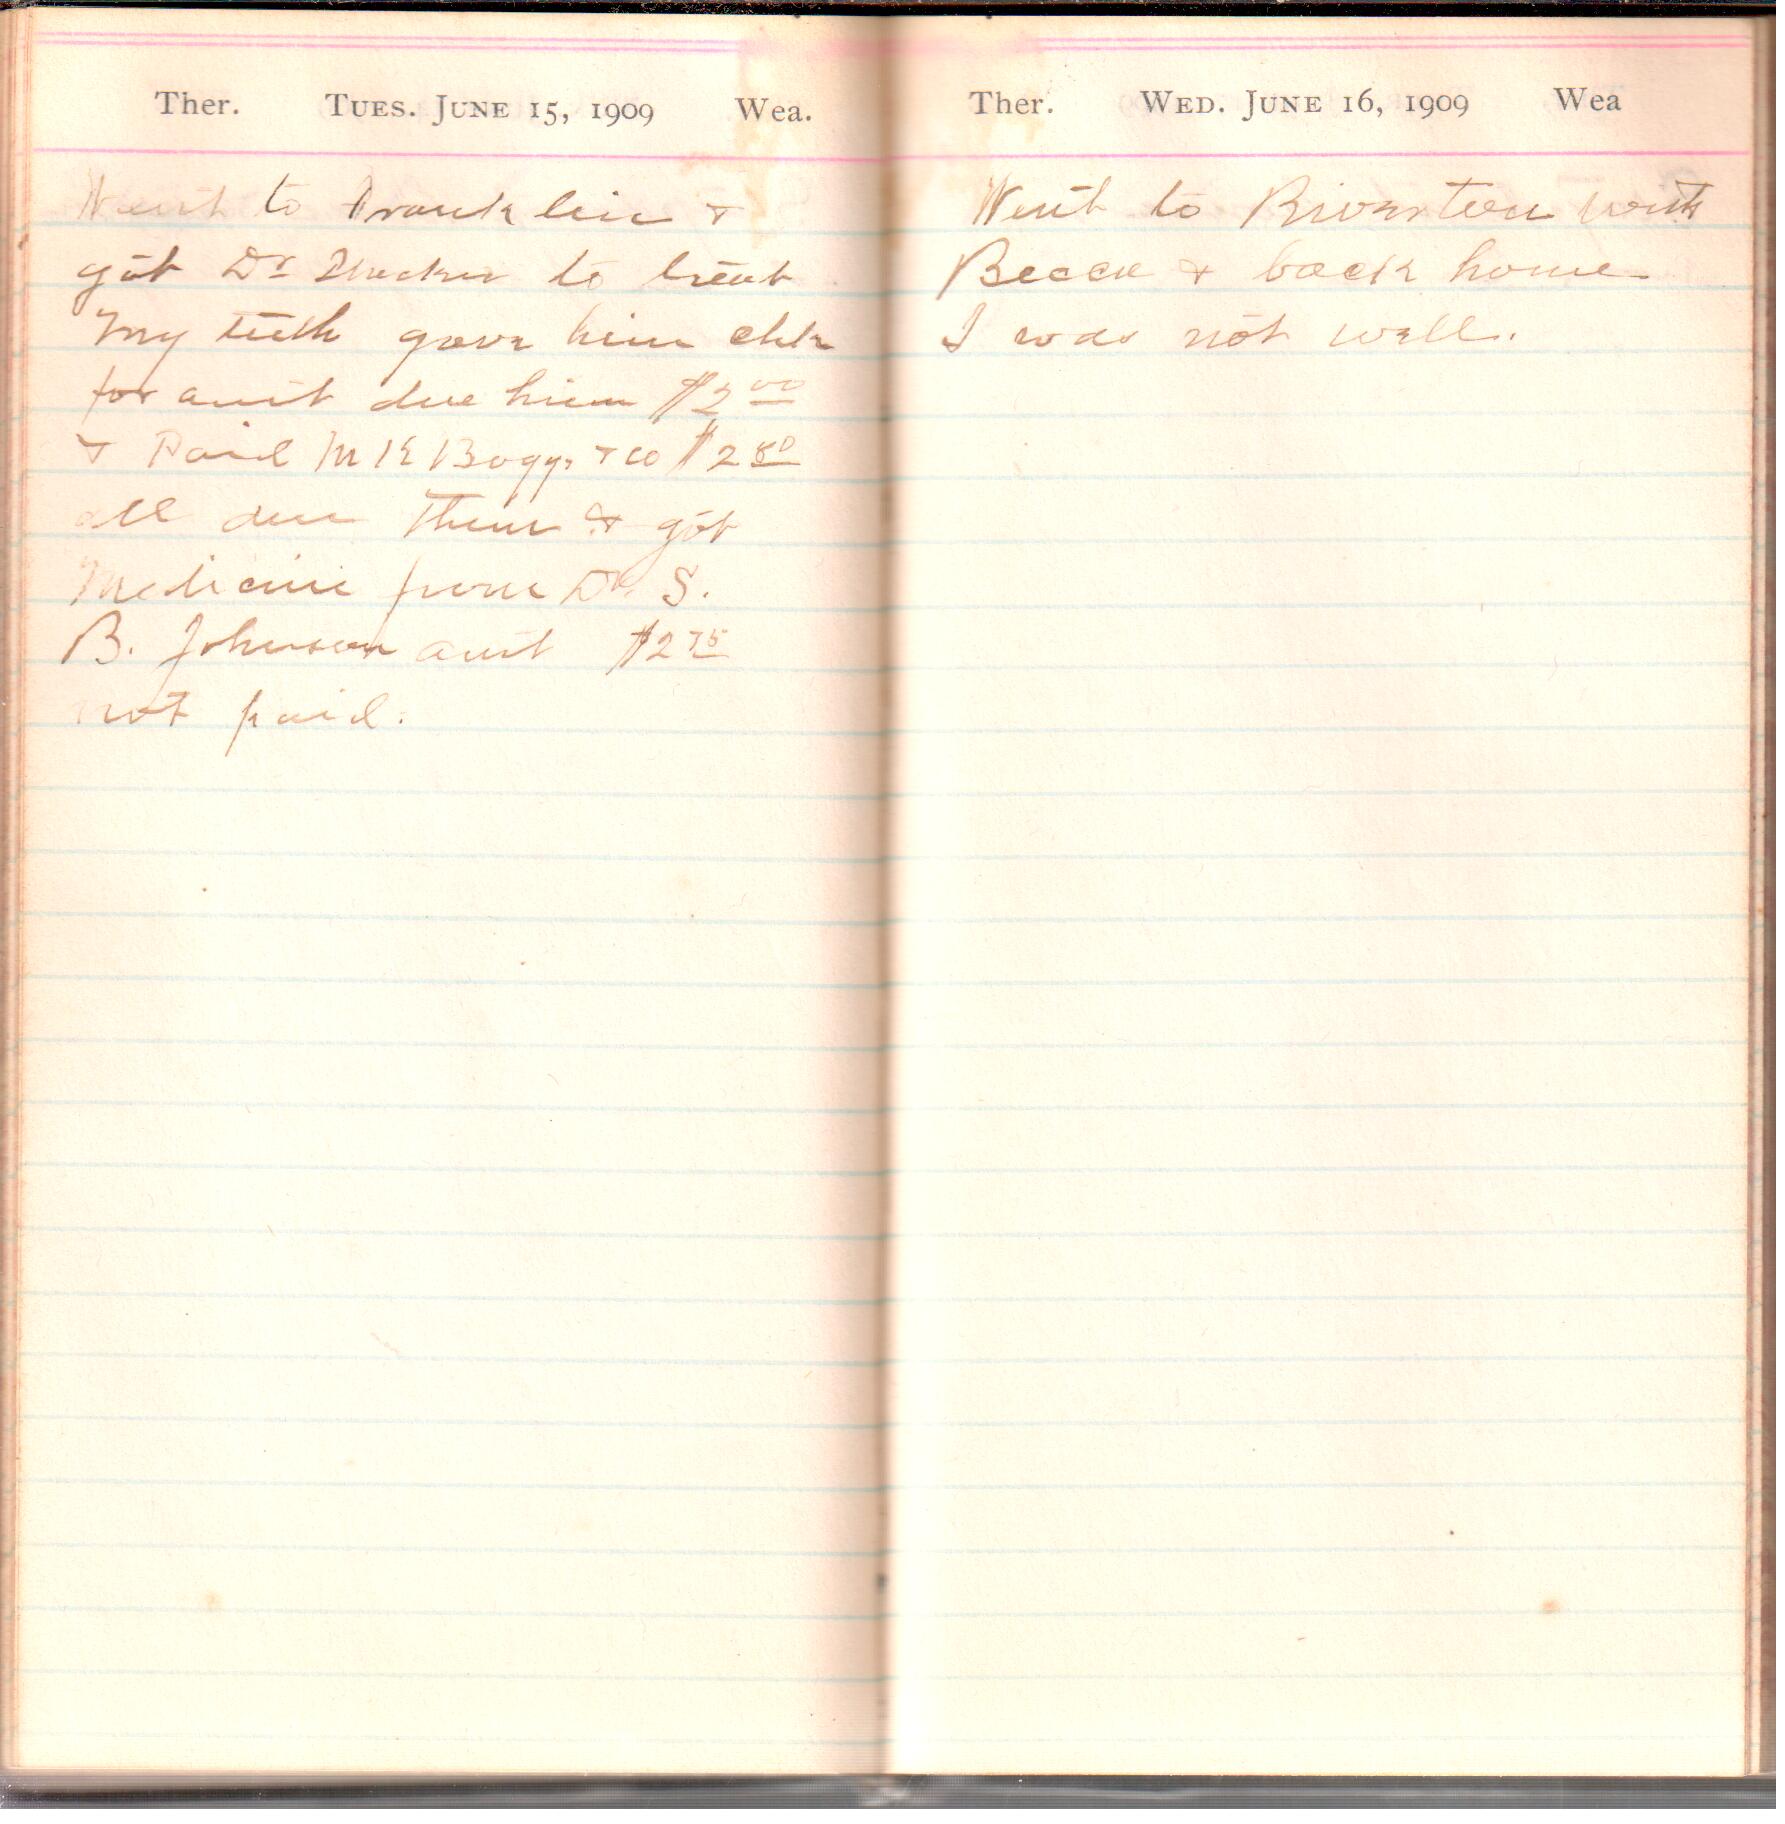 Ther. TUES. JUNE 15, 1909 Wea.
Went to Franklin &
got Dr to treat
my teeth gave him chk
for amt due him $2 00
& Paid M K Boggs & co $2 80
all due them & got
Medicine from Dr. S.
B. Johnson amt $2 75
not paid.
Ther. WED. JUNE 16, 1909 Wea
Went to Riverton with
Becca & back home
I was not well.